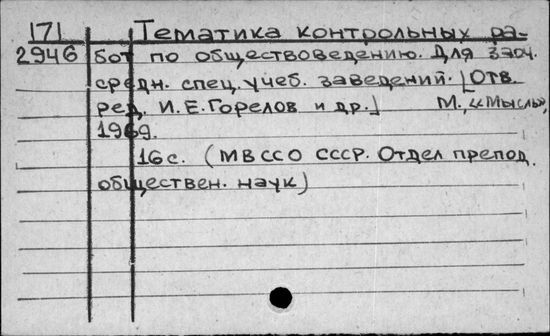 171 Тематика контрольных ра-
2946 бот по обществоведению. Для заоч.
средн. спец. учеб. заведений. [Отв.
ред. И.Е.Горелов и др.] М., «Мысль»,
1969.
16 с. (МВССО СССР. Отдел препод.
обществен. наук)